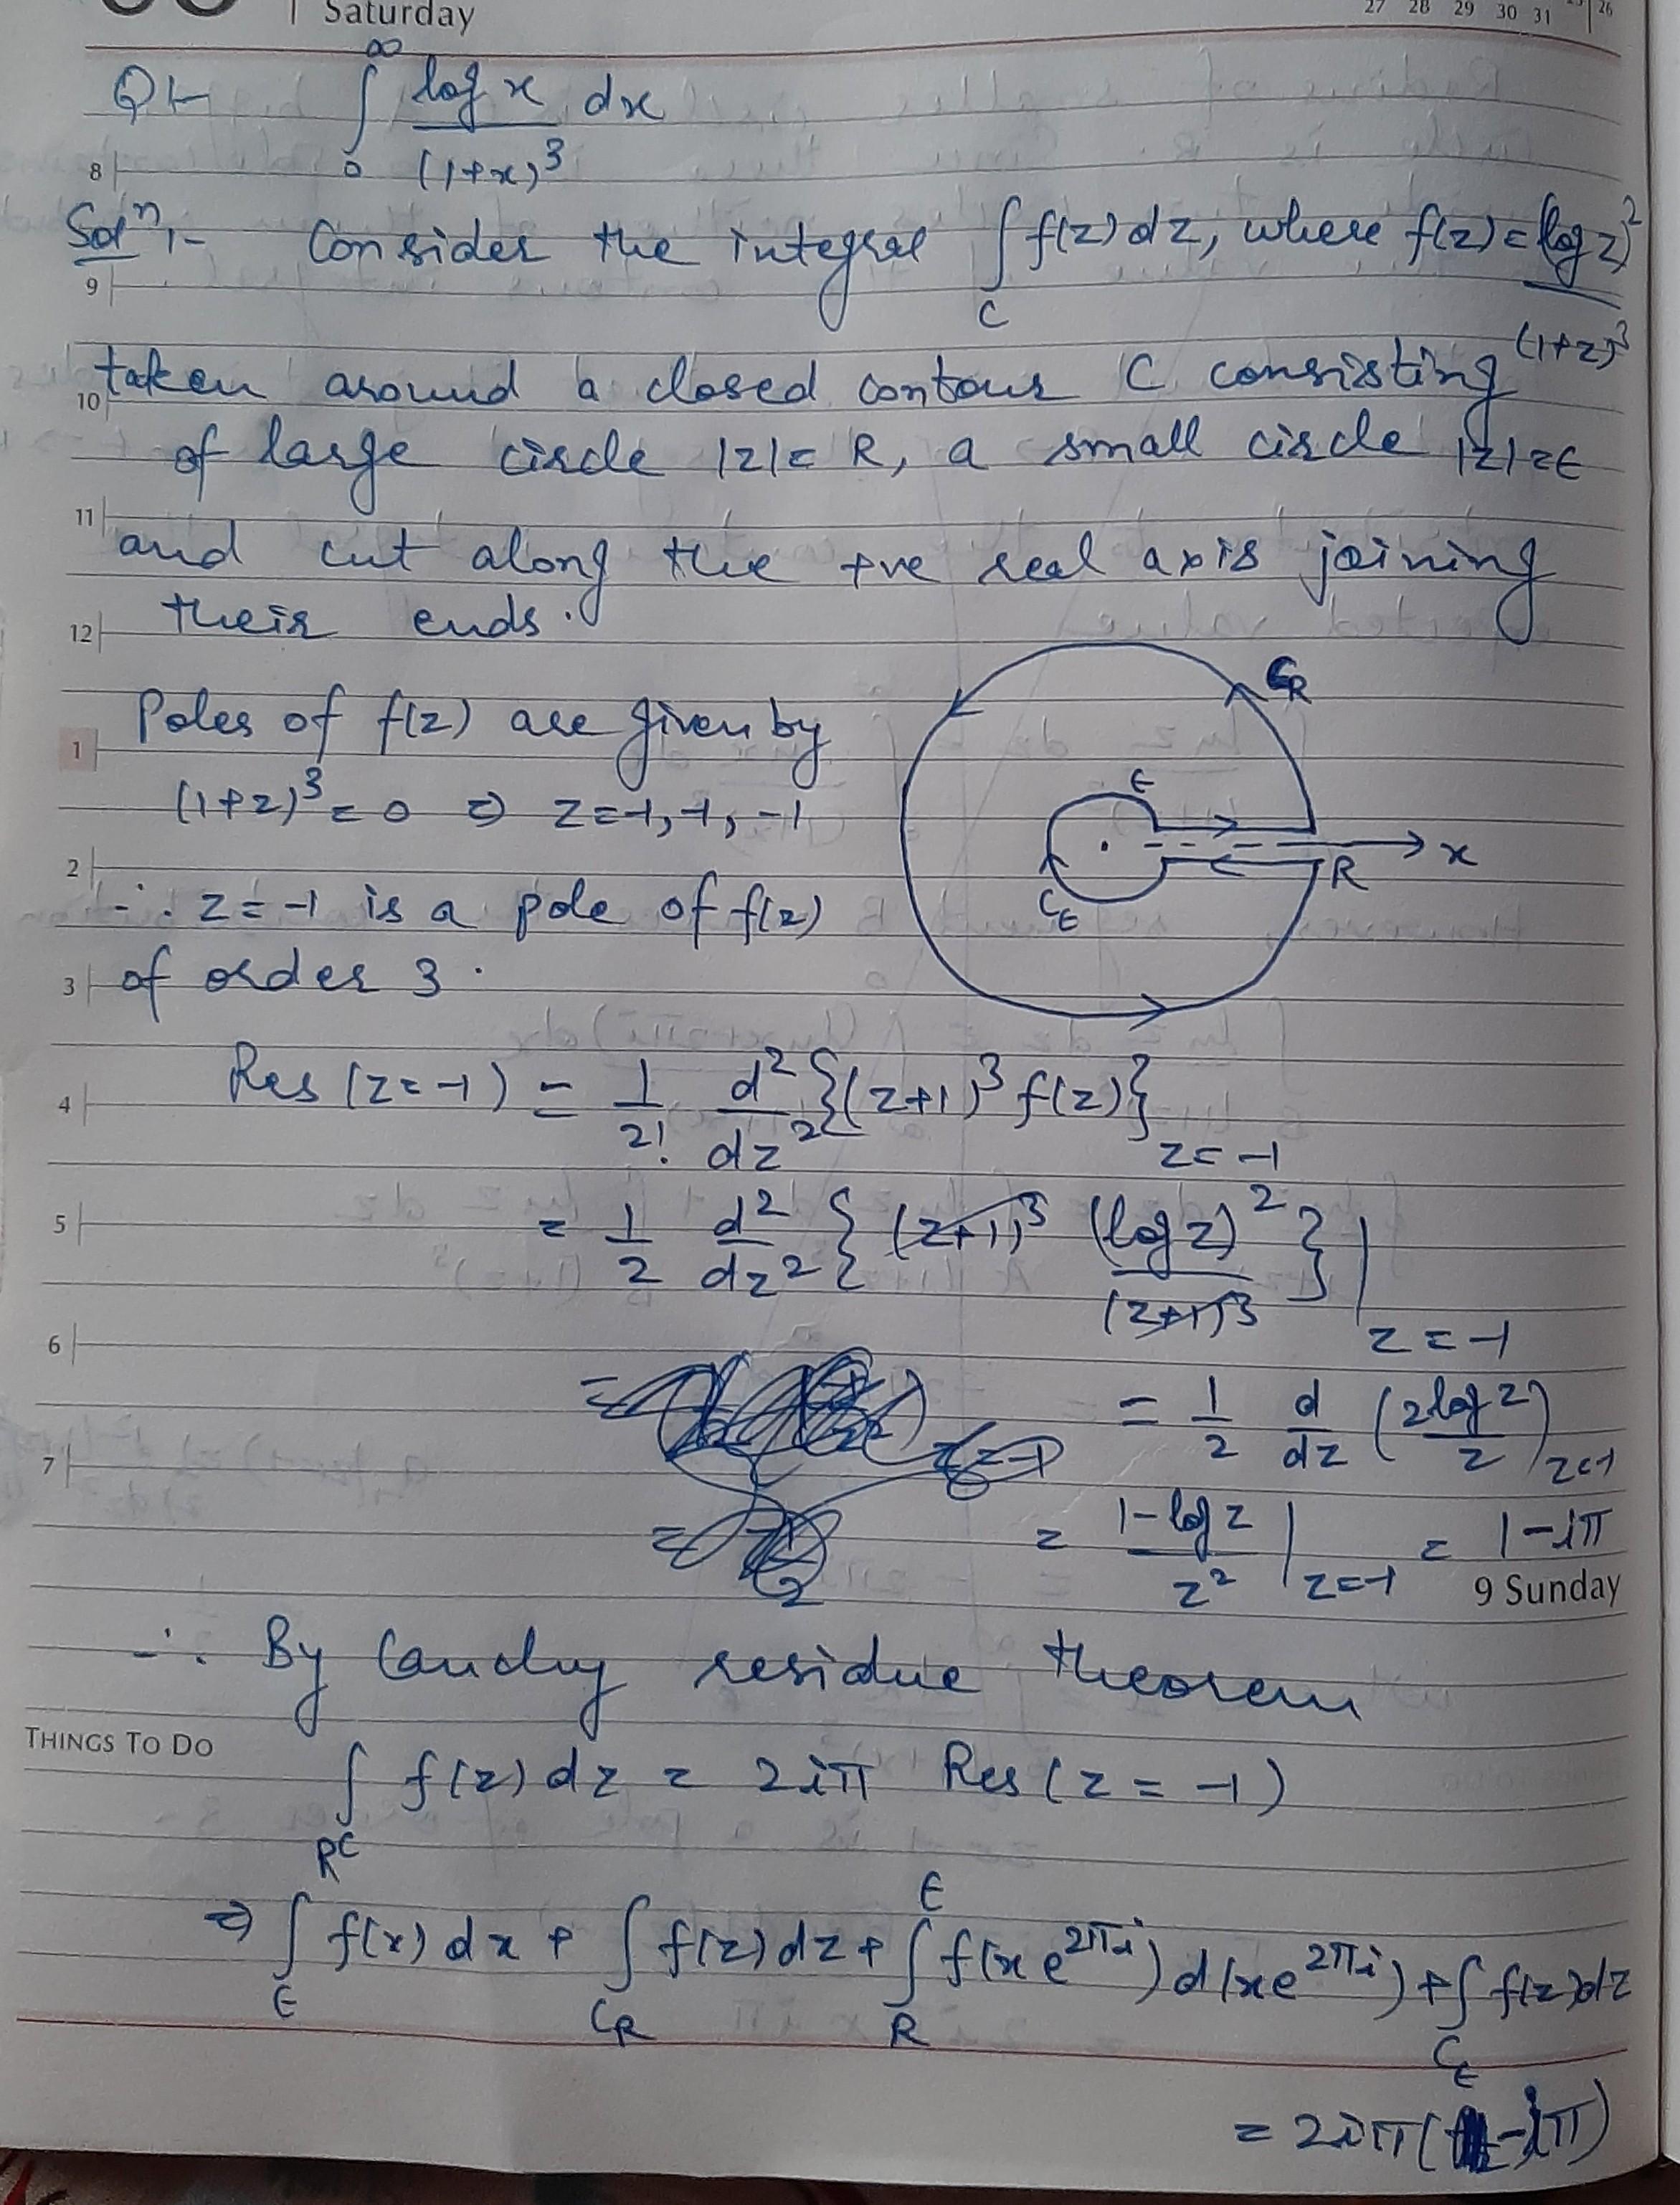 Saturday
27 28 29 30 31 26
Q1- ∫₀^∞ log x / (1+x)³ dx
8
Solⁿ:- Consider the integral ∫_C f(z) dz, where f(z) = (log z)² / (1+z)³
9
taken around a closed contour C consisting
10
of large circle |z| = R, a small circle |z| = ϵ
11
and cut along the +ve real axis joining
their ends.
12
C_R
Poles of f(z) are given by
1
(1+z)³ = 0 ⇒ z = -1, -1, -1
ϵ
x
R
C_ϵ
2
∴ z = -1 is a pole of f(z)
3
of order 3.
Res (z = -1) = 1/2! d²/dz² {(z+1)³ f(z)}_{z = -1}
4
= 1/2 d²/dz² { (z+1)³ (log z)² / (z+1)³ } |_{z = -1}
5
6
= 1/2 d/dz (2 log z / z)_{z=-1}
7
= 1 - log z / z² |_{z=-1} = 1 - iπ
9 Sunday
∴ By Cauchy residue theorem
THINGS TO DO
∫_C f(z) dz = 2iπ Res (z = -1)
⇒ ∫_ϵ^R f(x) dx + ∫_{C_R} f(z) dz + ∫_R^ϵ f(x e^{2πi}) d(x e^{2πi}) + ∫_{C_ϵ} f(z) dz
= 2iπ ( - iπ)